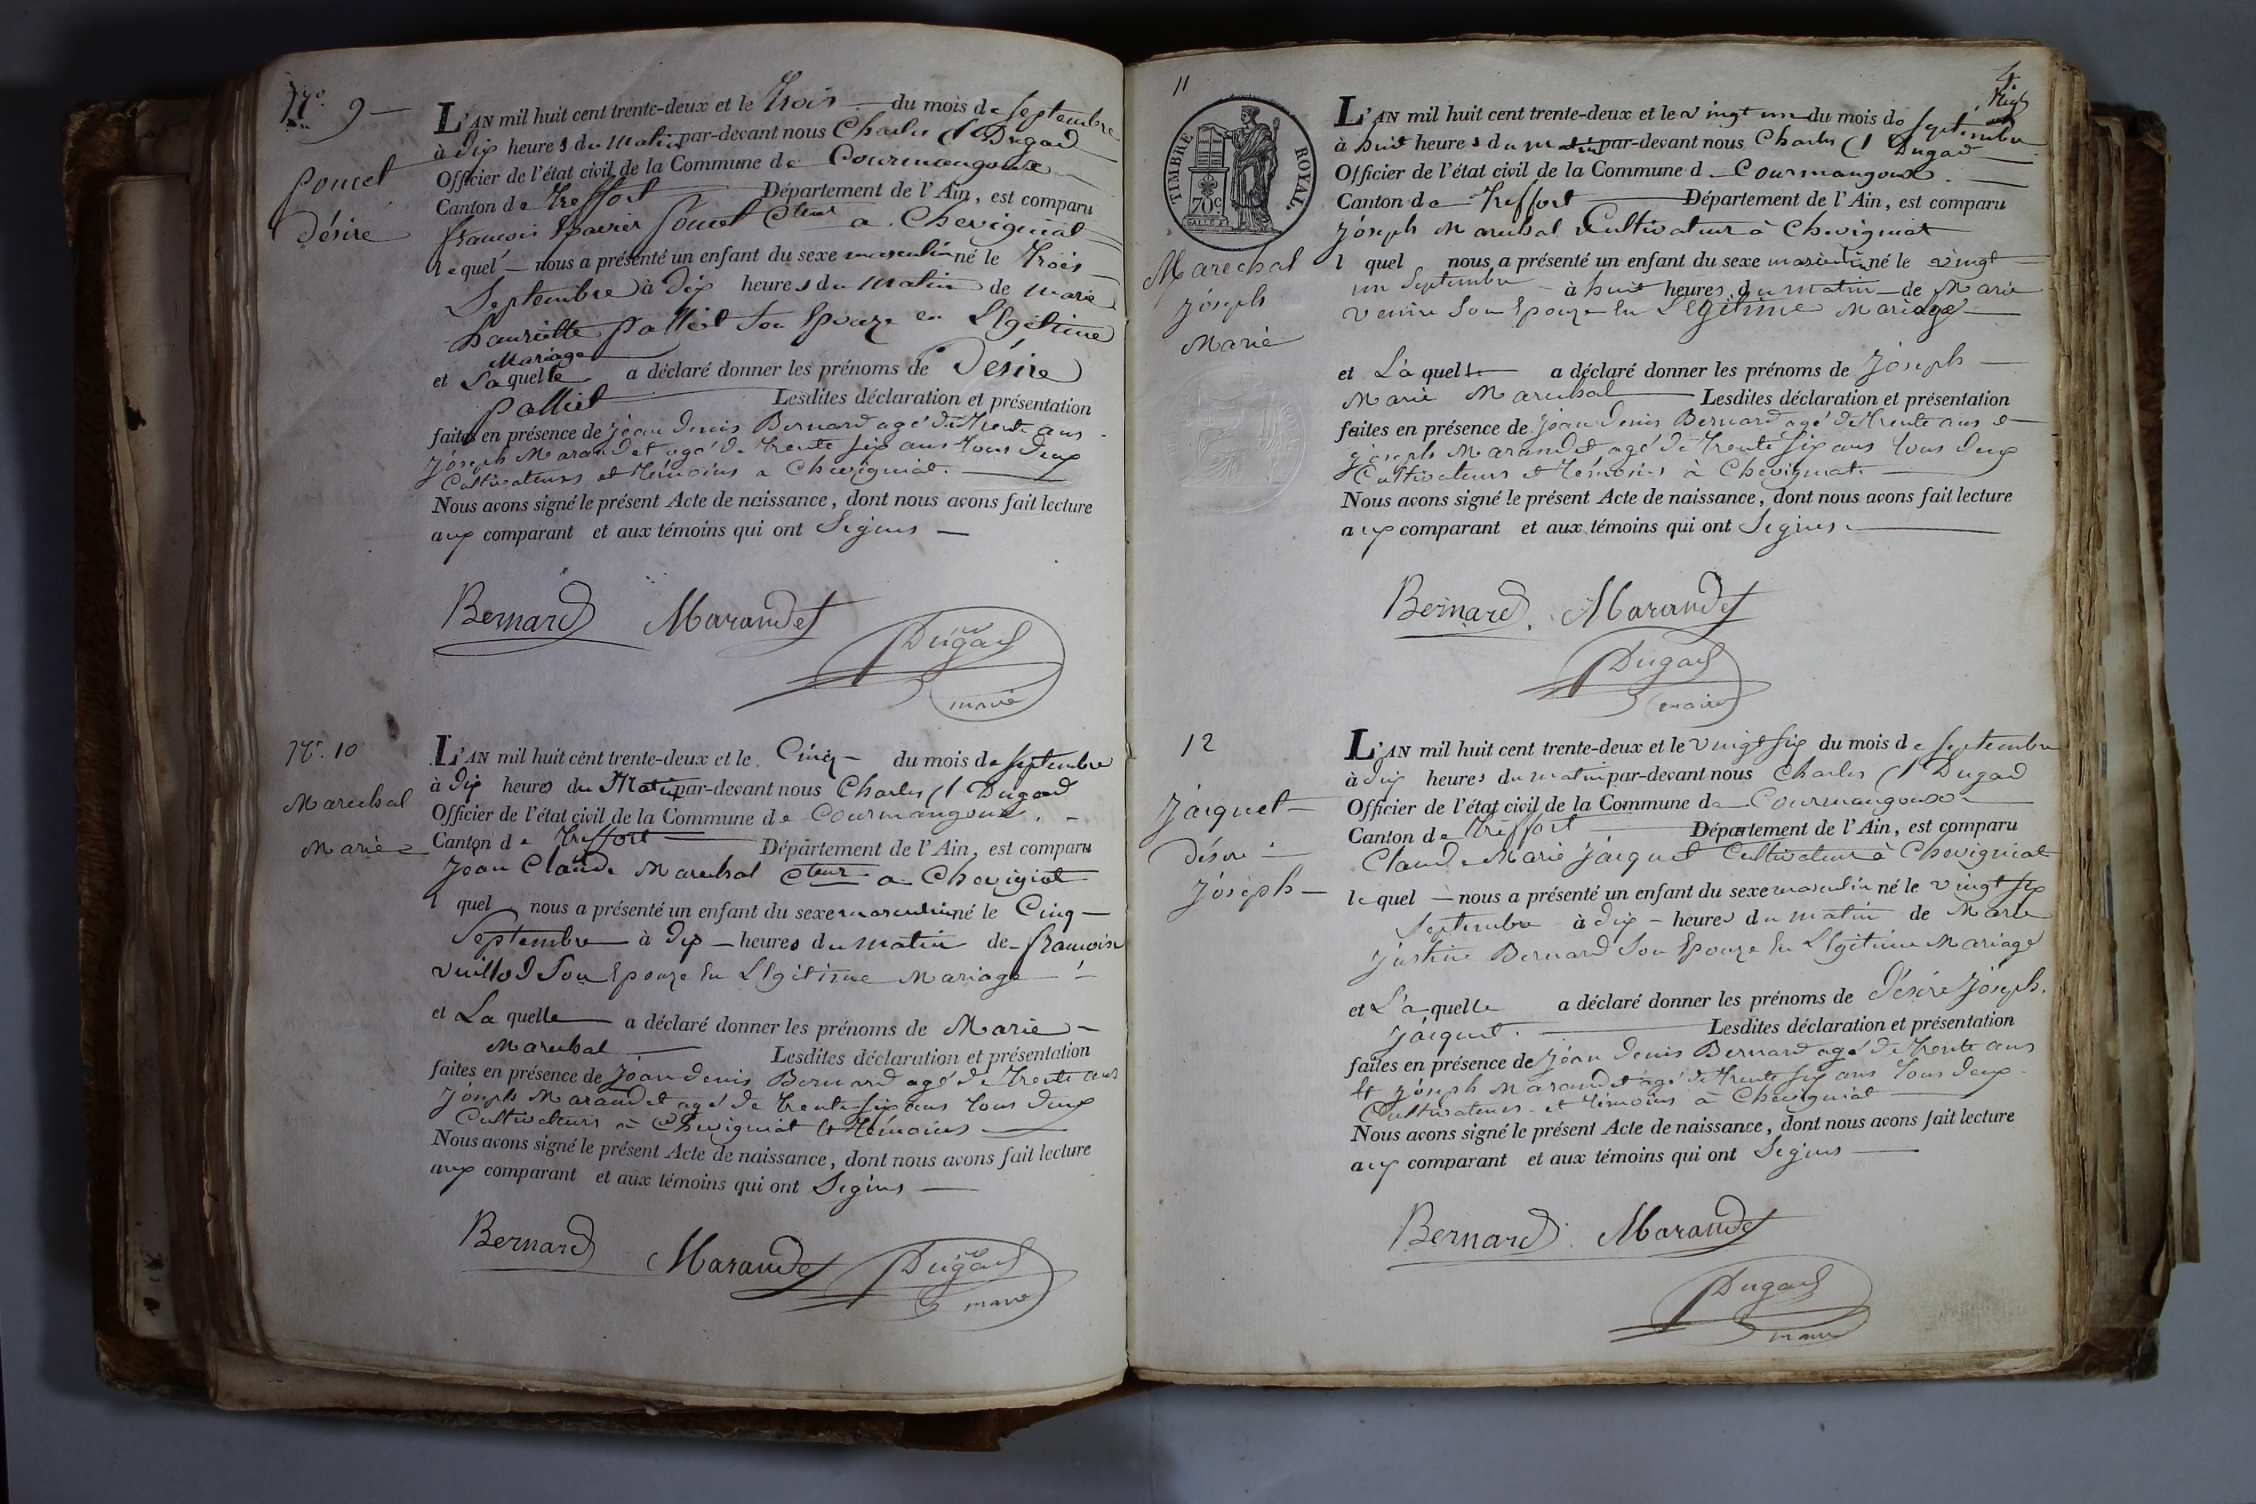 N° 9
Poncet
Désiré
L'AN mil huit cent trente-deux et le Trois du mois de Septembre
à Dix heures du Matin par-devant nous Charles Dugad
Officier de l'état civil de la Commune de Courmangoux
Canton de Treffort Département de l'Ain, est comparu
françois Xavier Poncet Cteur a Chevigniat
lequel nous a présenté un enfant du sexe masculin né le Trois
Septembre à Dix heures du Matin de Marie
henriette palliet Son Epouze en Légitime
Mariage
et Laquelle a déclaré donner les prénoms de Désire
palliet Lesdites déclaration et présentation
faites en présence de jean denis Bernard agé de Trente ans
joseph Marandet agé de trente six ans tous deux
Cultivateurs et témoins a Chevigniat.
Nous avons signé le présent Acte de naissance, dont nous avons fait lecture
aux comparant et aux témoins qui ont Signes
Bernard Marandet
Dugad
maire
N°. 10
Marechal
Marie
L'AN mil huit cent trente-deux et le Cinq du mois de Septembre
à Dix heures du Matin par-devant nous Charles Dugad
Officier de l'état civil de la Commune de Courmangoux.
Canton de Treffort Département de l'Ain, est comparu
jean Claude Marechal Cteur a Chevigiat
lquel nous a présenté un enfant du sexe masculin né le Cinq
Septembre à Dix heures du matin de francoise
vuillod Son Epouze En Légitime Mariage
et La quelle a déclaré donner les prénoms de Marie
Marechal Lesdites déclaration et présentation
faites en présence de jean denis Bernard agé de Trente ans
joseph Marandet agé de trente six ans tous deux
Cultivateurs a Chevigniat et témoins
Nous avons signé le présent Acte de naissance, dont nous avons fait lecture
aux comparant et aux témoins qui ont Signes
Bernard Marandet Dugad
maire
11
4
TIMBRE ROYAL
70c
Marechal
joseph
Marie
L'AN mil huit cent trente-deux et le vingt un du mois de Septembre
à huit heures du matin par-devant nous Charles Dugad
Officier de l'état civil de la Commune d Courmangoux.
Canton de Treffort Département de l'Ain, est comparu
joseph Marechal Cultivateur à Chevigniat
l quel nous a présenté un enfant du sexe masculin né le vingt
un Septembre à huit heures du matin de Marie
Son Epouze En Légitime Mariage
et La quelle a déclaré donner les prénoms de joseph
Marie Marechal Lesdites déclaration et présentation
faites en présence de jean denis Bernard agé de trente ans et
joseph Marandet agé de trente six ans tous deux
Cultivateurs et témoins à Chevigniat.
Nous avons signé le présent Acte de naissance, dont nous avons fait lecture
aux comparant et aux témoins qui ont Signes
Bernard. Marandet
Dugad
maire
12
jacquet
désiré
joseph
L'AN mil huit cent trente-deux et le vingt six du mois de septembre
à dix heures du matin par-devant nous Charles Dugad
Officier de l'état civil de la Commune de Courmangoux
Canton de Treffort Département de l'Ain, est comparu
Claude Marie jacquet Cultivateur à Chevigniat
lequel nous a présenté un enfant du sexe masculin né le vingt six
Septembre à dix heures du matin de Marie
justine Bernard Son Epouze En Légitime Mariage
et La quelle a déclaré donner les prénoms de désiré joseph.
jacquet. Lesdites déclaration et présentation
faites en présence de jean denis Bernard agé de trente ans
Et joseph Marandet agé de trente six ans tous deux
Cultivateurs et témoins à Chevigniat
Nous avons signé le présent Acte de naissance, dont nous avons fait lecture
aux comparant et aux témoins qui ont Signes
Bernard Marandet
Dugad
maire